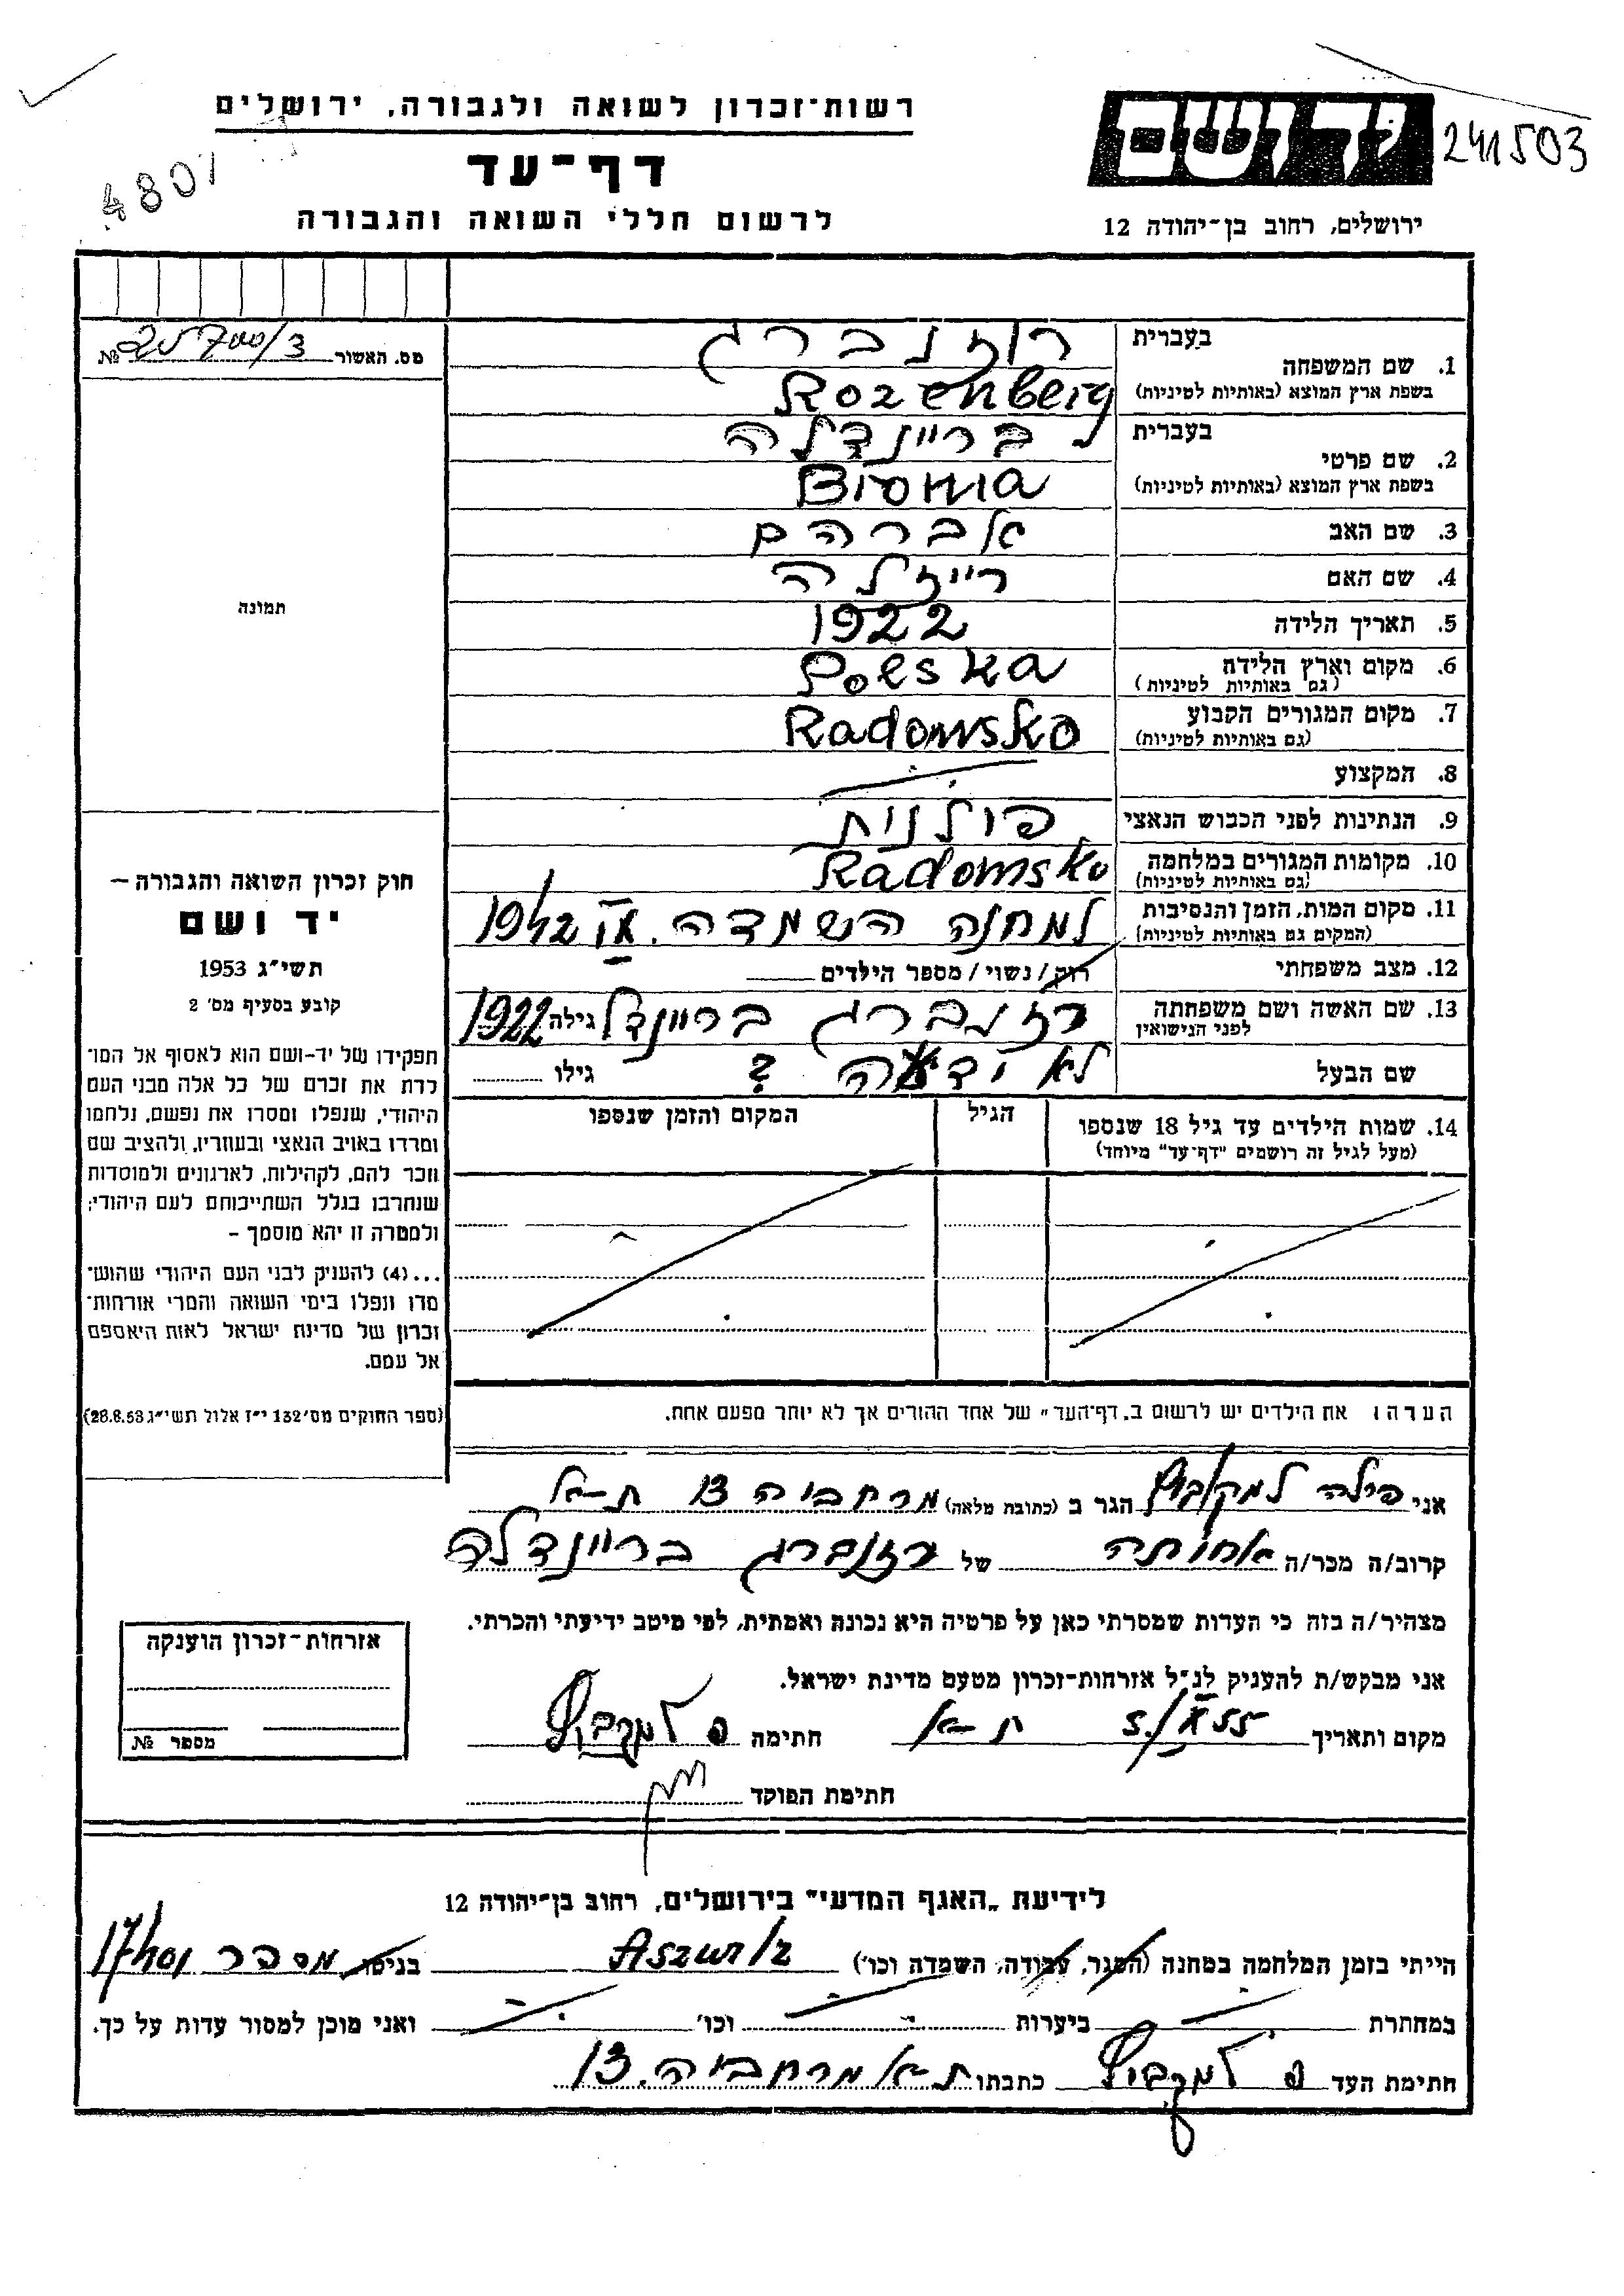 רשות-זכרון לשואה ולגבורה, ירושלים
דף-עד
לרשום חללי השואה והגבורה
ידושם
241503
4801
ירושלים, רחוב בן-יהודה 12
מס. האשור № 25700/3
תמונה
בעברית רוזנברג
1. שם המשפחה
בשפת ארץ המוצא (באותיות לטיניות) Rozenberg
בעברית בריינדלה
2. שם פרטי
בשפת ארץ המוצא (באותיות לטיניות) Bronia
3. שם האב אברהם
4. שם האם רייזלה
5. תאריך הלידה 1922
6. מקום וארץ הלידה Polska
(גם באותיות לטיניות)
7. מקום המגורים הקבוע Radomsko
(גם באותיות לטיניות)
8. המקצוע
9. הנתינות לפני הכבוש הנאצי פולנית
10. מקומות המגורים במלחמה Radomsko
(גם באותיות לטיניות)
11. מקום המות, הזמן והנסיבות למחנה השמדה. IX 1942
(המקום גם באותיות לטיניות)
12. מצב משפחתי רוק / נשוי / מספר הילדים
13. שם האשה ושם משפחתה רזנברג בריינדל גילה 1922
לפני הנישואין
שם הבעל לא ידעה ? גילו
14. שמות הילדים עד גיל 18 שנספו הגיל המקום והזמן שנספו
(מעל לגיל זה רושמים "דף-עד" מיוחד)
הערה: את הילדים יש לרשום ב„דף-העד" של אחד ההורים אך לא יותר מפעם אחת.
חוק זכרון השואה והגבורה –
יד ושם
תשי"ג 1953
קובע בסעיף מס' 2
תפקידו של יד-ושם הוא לאסוף אל המו-
לדת את זכרם של כל אלה מבני העם
היהודי, שנפלו ומסרו את נפשם, נלחמו
ומרדו באויב הנאצי ובעוזריו, ולהציב שם
וזכר להם, לקהילות, לארגונים ולמוסדות
שנחרבו בגלל השתייכותם לעם היהודי;
ולמטרה זו יהא מוסמך –
...(4) להעניק לבני העם היהודי שהוש-
מדו ונפלו בימי השואה והמרי אזרחות-
זכרון של מדינת ישראל לאות היאספם
אל עמם.
(ספר החוקים מס' 132 י"ז אלול תשי"ג 28.8.53)
אני הגר ב (כתובת מלאה) מרחביה 13 ת-א
קרוב/ה מכר/ה אחותה של רזנברג בריינדלה
מצהיר/ה בזה כי העדות שמסרתי כאן על פרטיה היא נכונה ואמתית, לפי מיטב ידיעתי והכרתי.
אני מבקש/ת להעניק לנ"ל אזרחות-זכרון מטעם מדינת ישראל.
מקום ותאריך ת-א חתימה
חתימת הפוקד
אזרחות-זכרון הוענקה
מספר №
לידיעת „האגף המדעי" בירושלים, רחוב בן-יהודה 12
הייתי בזמן המלחמה במחנה (הסגר, עבודה, השמדה וכו') בגיטו מספר
במחתרת ביערות וכו' ואני מוכן למסור עדות על כך.
חתימת העד כתבתו ת-א מרחביה. 13